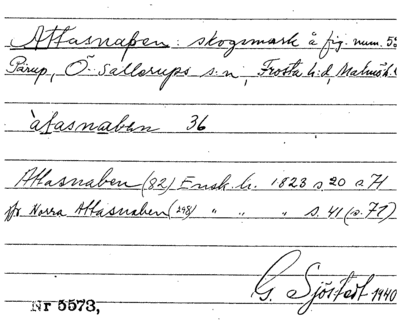 Attasnaben: skogsmark å fig. num. 53
Pärup, Ö. Sallerups s:n, Frosta h:d, Malmöh.
àtasnaben 36
Attasnaben (82) Ensk. h. 1828 s 20 a H
jfr Norra Attasnaben (298) " " " s. 41 (a. 71)
G. Sjöstedt 1940
Nr 5573,